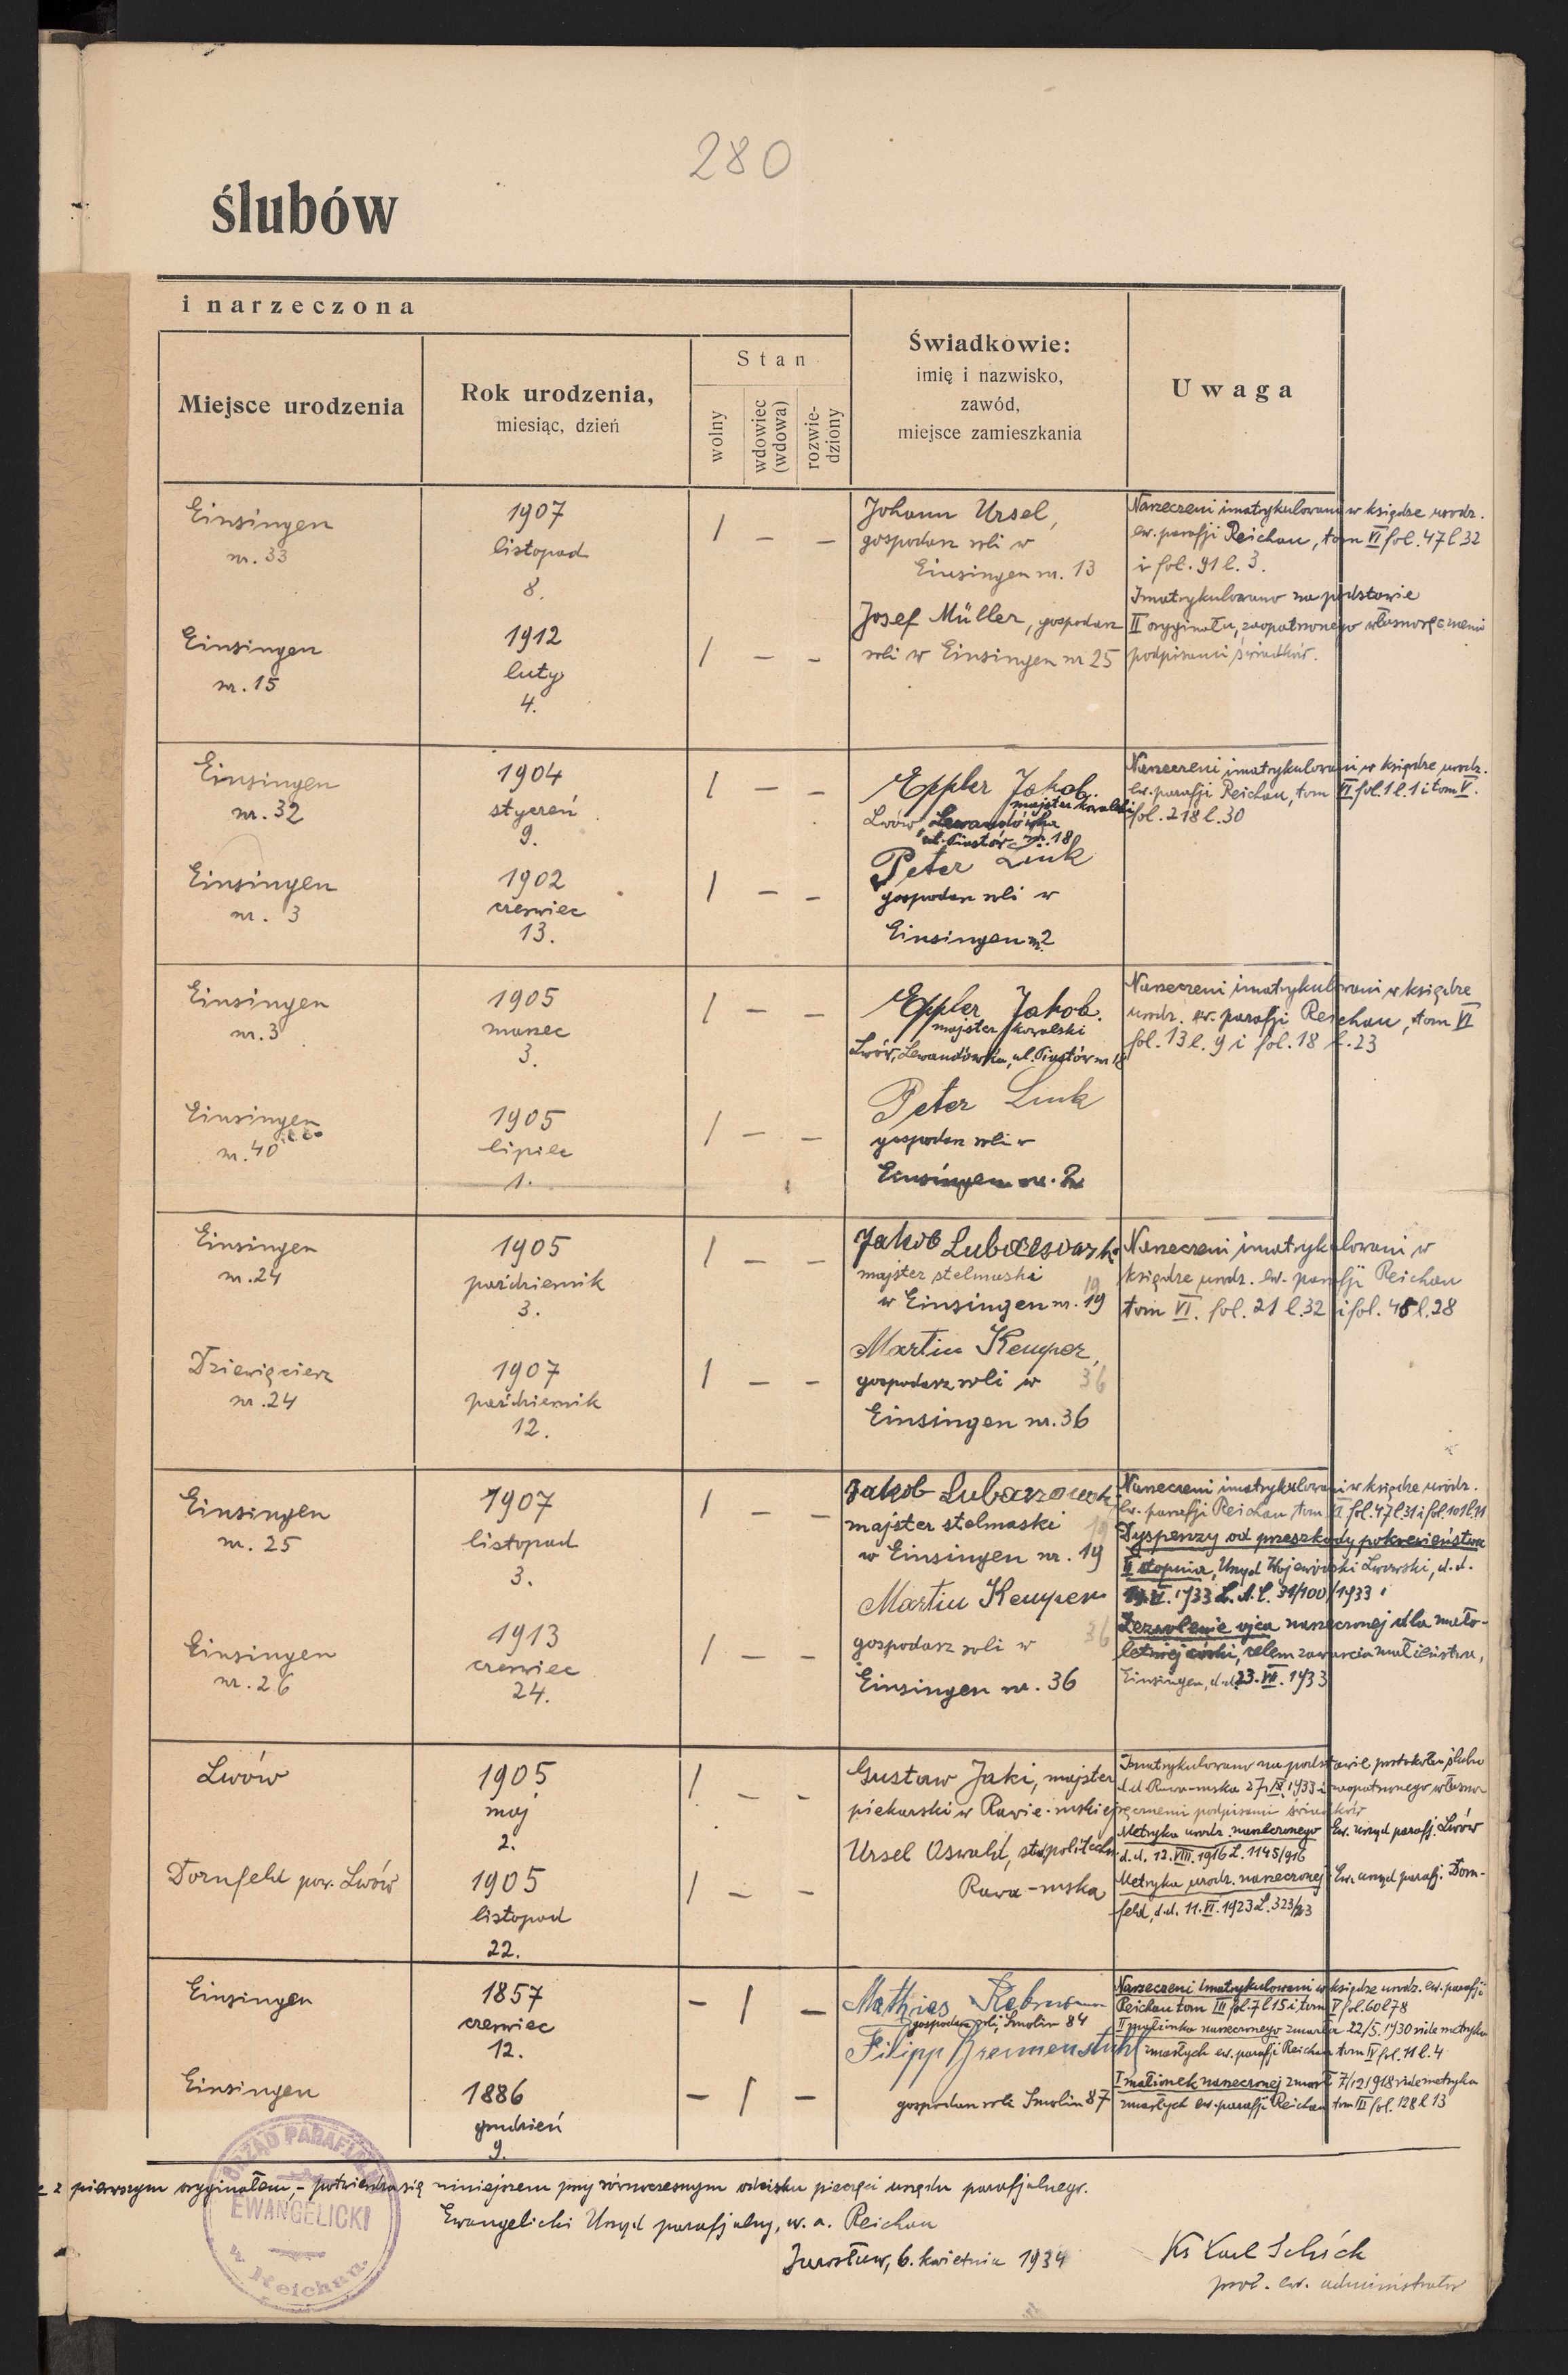 280
ślubów
i narzeczona
Miejsce urodzenia
Rok urodzenia,
miesiąc, dzień
Stan
wolny
wdowiec
(wdowa)
rozwie-
dziony
Świadkowie:
imię i nazwisko,
zawód,
miejsce zamieszkania
Uwaga
Einsingen
nr. 33
1907
listopad
8.
1 – –
Johann Ursel,
gospodarz roli w
Einsingen nr. 13
Narzeczeni imatrykulowani w księdze urodz.
ew. parafji Reichau, tom VI fol. 47 l 32
i fol. 91 l. 3.
Imatrykulowano na podstawie
II oryginału, zaopatrzonego własnoręcznemi
podpisami świadków.
Einsingen
nr. 15
1912
luty
4.
1 – –
Josef Müller, gospodarz
roli w Einsingen nr 25
Einsingen
nr. 32
1904
styczeń
9.
1 – –
Eppler Jakob.
majster kowalski
Lwów, Lewandówka
ul. Piastów nr. 18
Narzeczeni imatrykulowani w księdze urodz.
ew. parafji Reichau, tom VI fol. 1 l. 1 i tom V.
fol. 218 l. 30
Einsingen
nr. 3
1902
czerwiec
13.
1 – –
Peter Link
gospodarz roli w
Einsingen nr. 2
Einsingen
nr. 3
1905
marzec
3.
1 – –
Eppler Jakob.
majster kowalski
Lwów, Lewandówka, ul. Piastów nr 18
Narzeczeni imatrykulowani w księdze
urodz. ew. parafji Reichau, tom VI
fol. 13 l. 9 i fol. 18 l. 23
Einsingen
nr. 40
1905
lipiec
1.
1 – –
Peter Link
gospodarz roli w
Einsingen nr. 2
Einsingen
nr. 24
1905
październik
3.
1 – –
Jakob
majster stelmaski
19
w Einsingen nr. 19
Narzeczeni imatrykulowani w
księdze urodz. ew. parafji Reichau
tom VI. fol. 21 l. 32 i fol. 45 l. 28
Dziewięcierz
nr. 24
1907
październik
12.
1 – –
Martin Kemper,
gospodarz roli w 36
Einsingen nr. 36
Einsingen
nr. 25
1907
listopad
3.
1 – –
Jakob
majster stelmaski 19
w Einsingen nr. 19
Narzeczeni imatrykulowani w księdze urodz.
ew. parafji Reichau tom VI fol. 47 l. 31 i fol. 101 l. 11
Dyspenzy od przeszkody pokrewieństwa
II stopnia, Urząd Wojewódzki Lwowski, d. d.
1933 L. A. C. 31/100/1933
Zezwolenie ojca narzeczonej dla mało-
letniej córki, celem zawarcia małżeństwa,
Einsingen, d. d. 23. VII. 1933
Einsingen
nr. 26
1913
czerwiec
24.
1 – –
Martin Kemper
gospodarz roli w 36
Einsingen nr. 36
Lwów
1905
maj
2.
1 – –
Gustaw Jaki, majster
piekarski w Rawie-ruskiej
Imatrykulowano na podstawie protokołu ślubu
d. d. Rawa-ruska 27. IX. 1933 i zaopatrzonego własno-
ręcznemi podpisami świadków
Metryka urodz. narzeczonego Ew. urząd parafj. Lwów
d. d. 12. VIII. 1916 L. 1145/916
Metryka urodz. narzeczonej Ew. urząd parafj. Dorn-
feld, d. d. 11. VI. 1923 L. 323/23
Dornfeld pow. Lwów
1905
listopad
22.
1 – –
Ursel Oswald, stud. politechn.
Rawa-ruska
Einsingen
1857
czerwiec
12.
– 1 –
Mathias
gospodarz roli, Smolin 84
Narzeczeni imatrykulowani w księdze urodz. ew. parafji
Reichau tom III fol. 7 l 15 i tom V fol. 60 l 78
II małżonka narzeczonego zmarła 22/5. 1930 vide metryka
zmarłych ew. parafji Reichau tom IV fol. 11 l. 4
I małżonek narzeczonej zmarł 7/12 1918 vide metryka
zmarłych ew. parafji Reichau tom III fol. 128 l 13
Einsingen
1886
grudzień
9.
– 1 –
Filipp Bremenstuhl
gospodarz roli Smolin 87
z pierwszym oryginałem, – potwierdza się niniejszem przy równoczesnym odcisku pieczęci urzędu parafjalnego.
Ewangelicki Urząd parafjalny, w. a. Reichau
Jarosław, 6. kwietnia 1934
Ks Karl Schick
prob. ew. administrator
URZĄD PARAFIALNY
EWANGELICKI
w Reichau